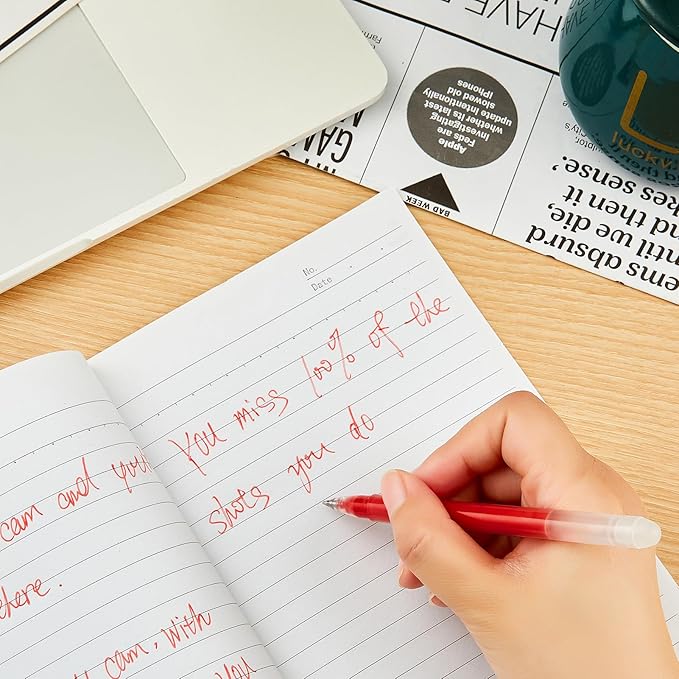 You miss 100% of the
shots you do
No.
Date
cam and you
here.
cam, with
you
HAVE
Apple
Feds are
investigating
whether its latest
update intentionally
slowed old
iPhones
BAD WEEK
ems absurd
until we die,
and then it
kes sense.'
luckin